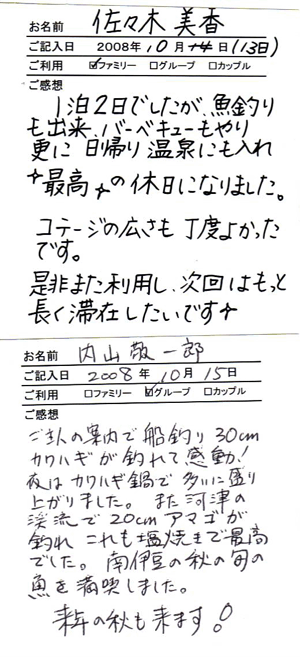 お名前 佐々木 美香
ご記入日 2008年10月14日(13日)
ご利用 ☑ファミリー □グループ □カップル
ご感想
1泊2日でしたが、魚釣り
も出来、バーベキューもやり
更に 日帰り温泉にも入れ
最高の休日になりました。
コテージの広さも 丁度よかった
です。
是非また利用し、次回はもっと
長く滞在したいです
お名前 内山 敬一郎
ご記入日 2008年10月15日
ご利用 □ファミリー ☑グループ □カップル
ご感想
ご主人の案内で船釣り 30cm
カワハギが釣れて感動!
夜はカワハギ鍋で 多いに盛り
上がりました。 また 河津の
渓流で 20cm アマゴが
釣れ これも塩焼まで最高
でした。 南伊豆の秋の旬の
魚を満喫しました。
来年の秋も来ます!